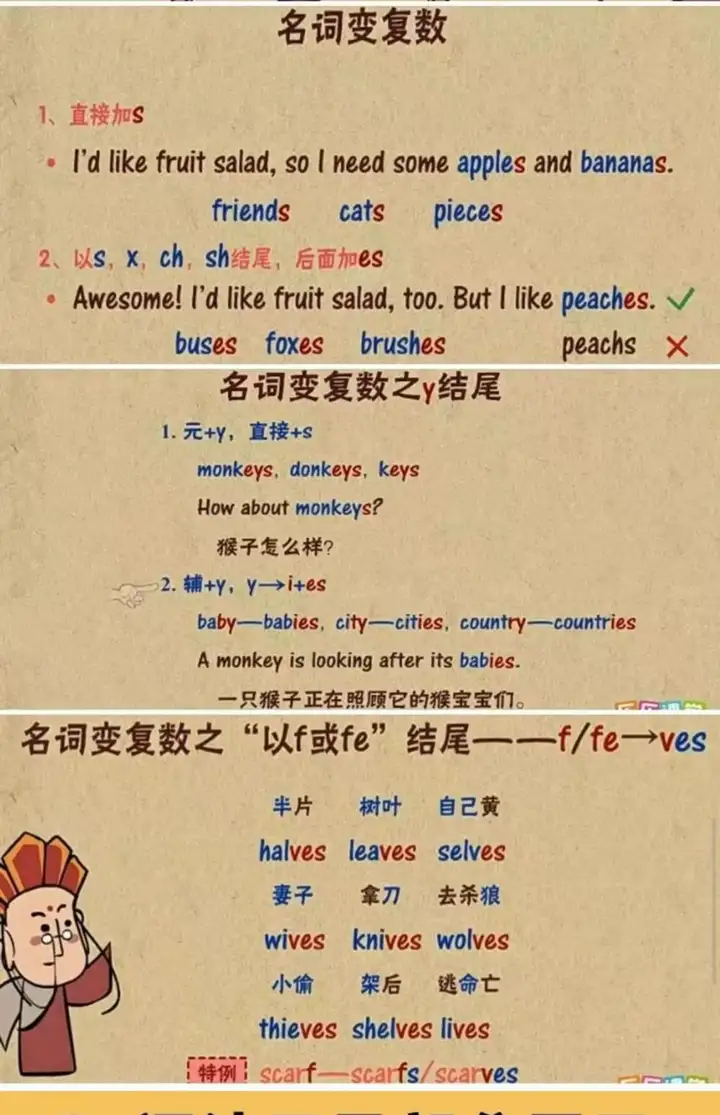 名词变复数
1、直接加s
• I'd like fruit salad, so I need some apples and bananas.
friends cats pieces
2、以s, x, ch, sh结尾, 后面加es
• Awesome! I'd like fruit salad, too. But I like peaches. ✓
buses foxes brushes peachs ✗
名词变复数之y结尾
1. 元+y, 直接+s
monkeys, donkeys, keys
How about monkeys?
猴子怎么样?
2. 辅+y, y→i+es
baby—babies, city—cities, country—countries
A monkey is looking after its babies.
一只猴子正在照顾它的猴宝宝们。
名词变复数之“以f或fe”结尾——f/fe→ves
半片 树叶 自己黄
halves leaves selves
妻子 拿刀 去杀狼
wives knives wolves
小偷 架后 逃命亡
thieves shelves lives
特例 scarf—scarfs/scarves